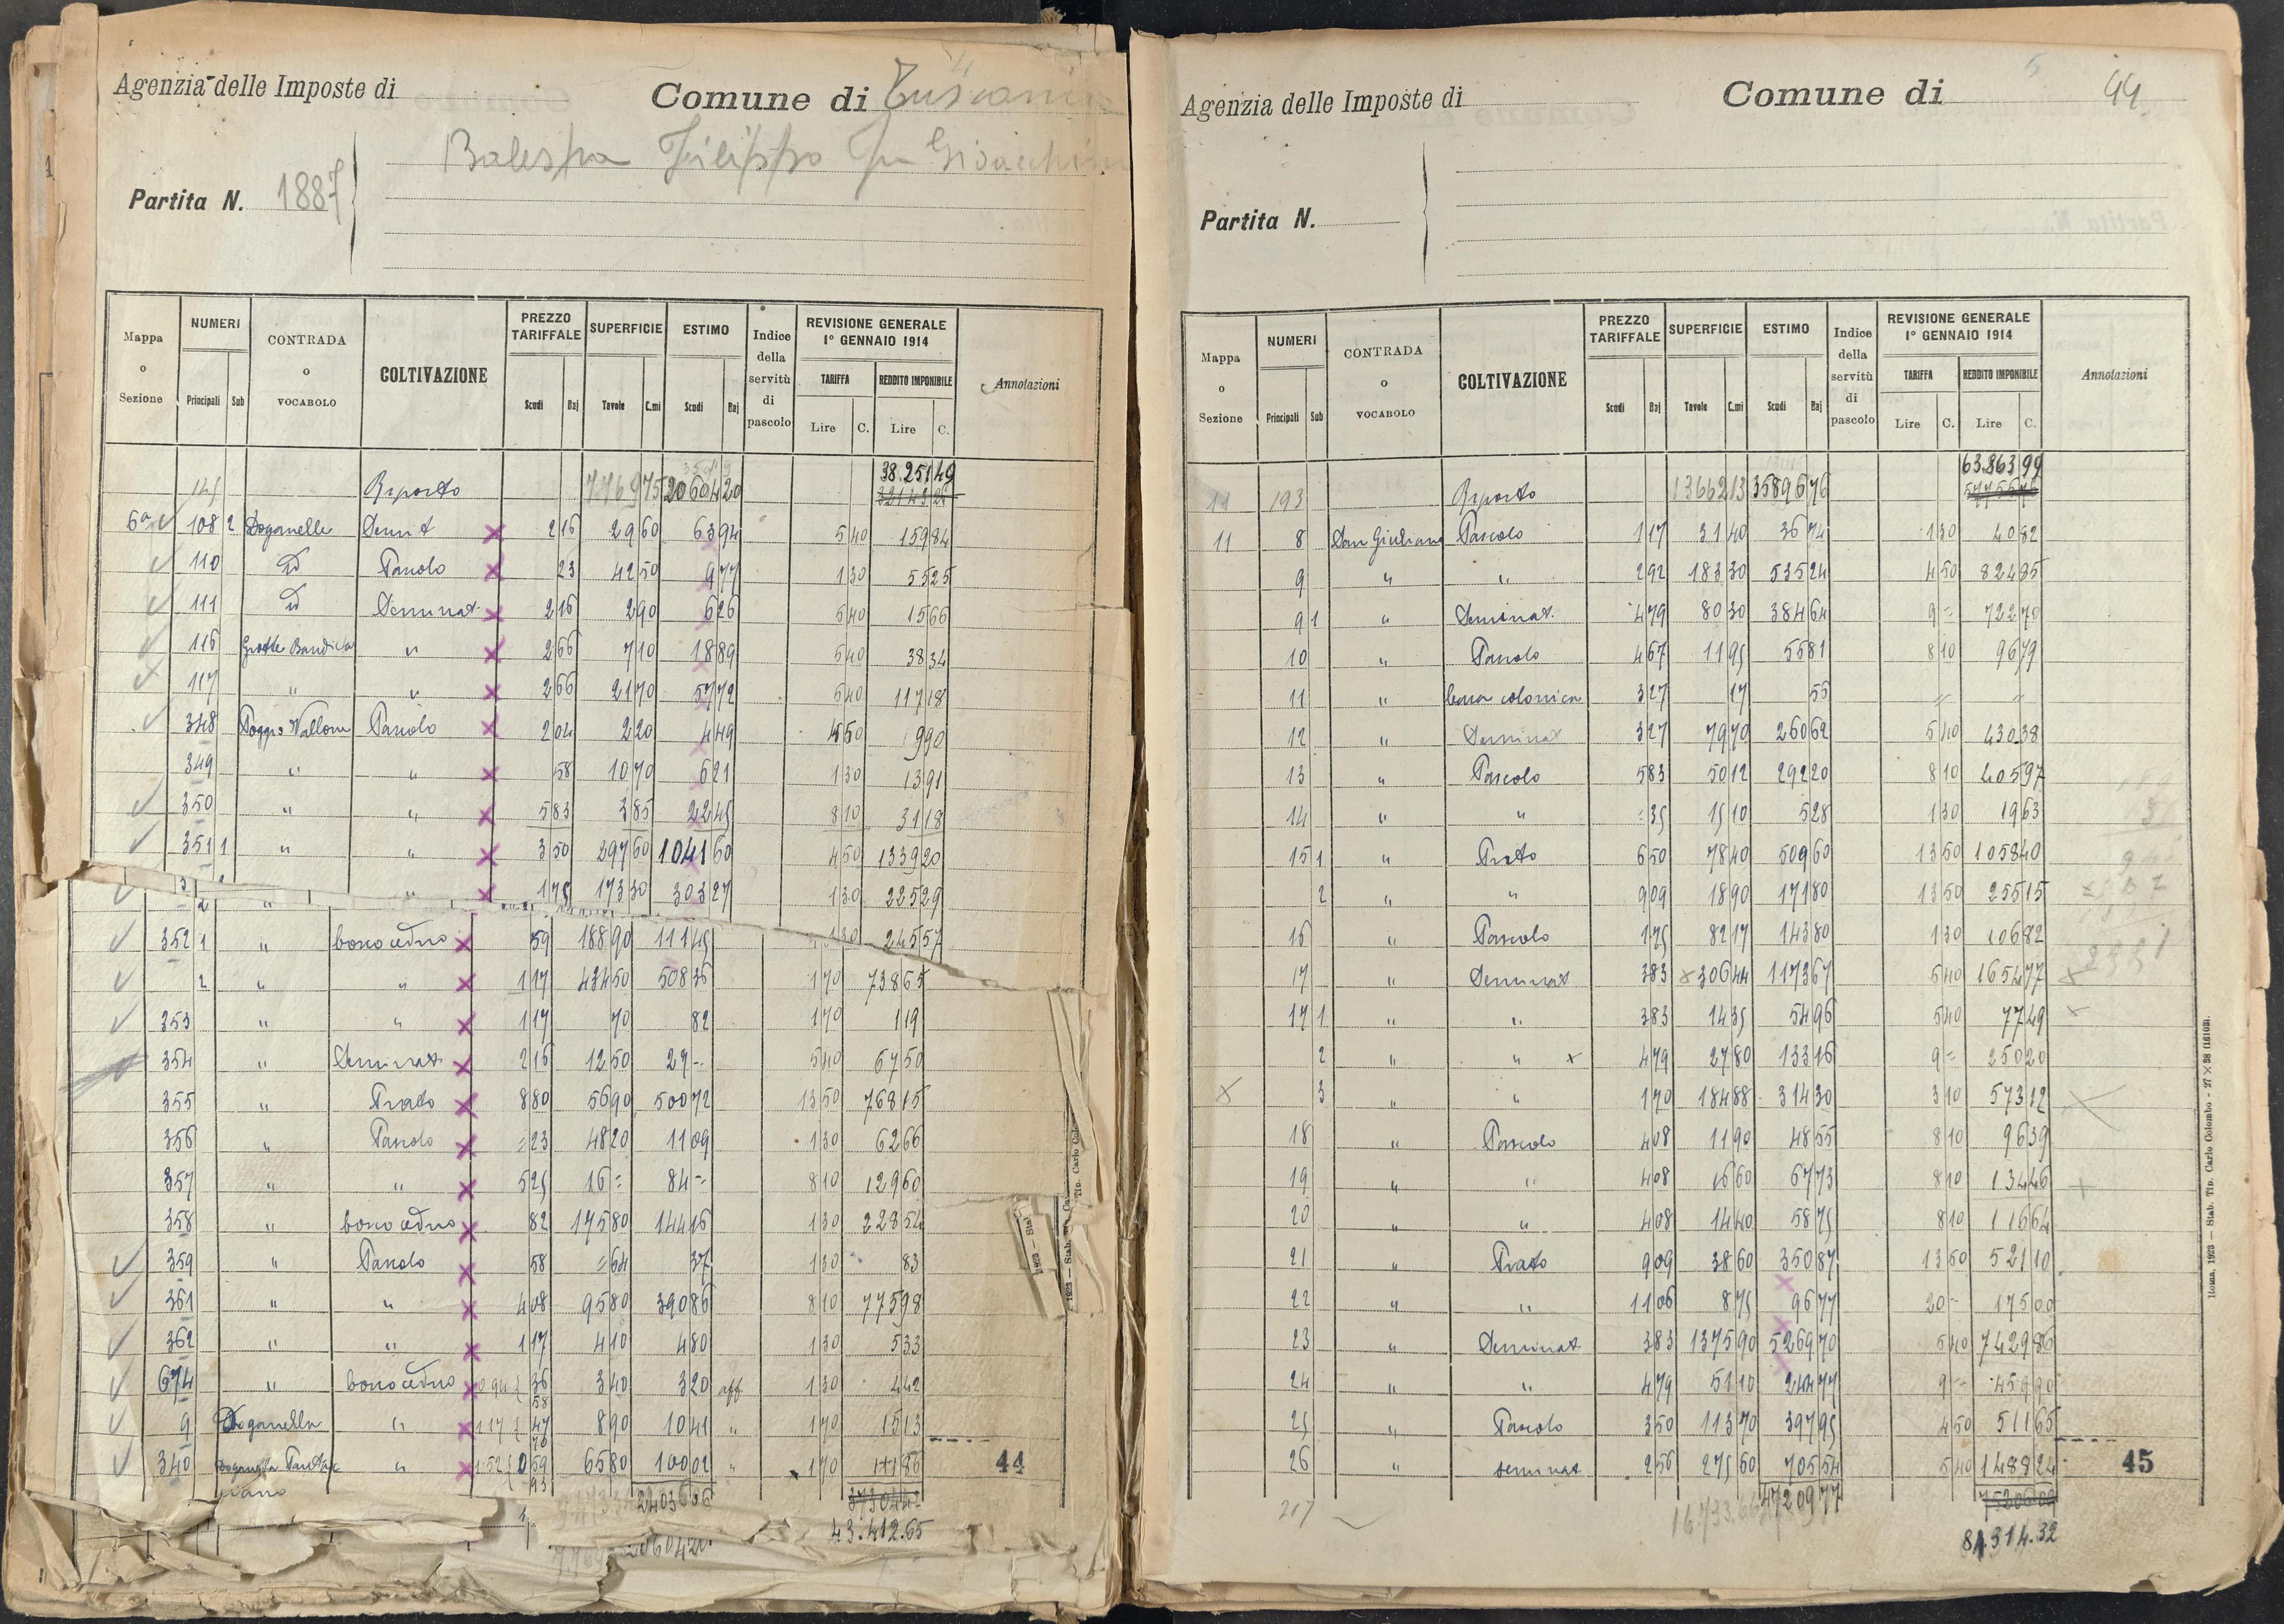 Agenzia delle Imposte di Comune di Tuscania
4
Balestra Filippo fu Gioacchino
Partita N. 1887
Mappa o Sezione NUMERI Principali Sub CONTRADA o VOCABOLO COLTIVAZIONE PREZZO TARIFFALE Scudi Baj SUPERFICIE Tavole C.mi ESTIMO Scudi Baj Indice della servitù di pascolo REVISIONE GENERALE 1° GENNAIO 1914 TARIFFA Lire C. REDDITO IMPONIBILE Lire C. Annotazioni
38.251 49
145 Riporto 7769 75 20604 20
6ª 108 2 Doganelle Semint 2 16 29 60 63 94 5 40 159 84
110 id Pascolo 23 42 50 9 77 1 30 55 25
111 id Seminat. 2 16 2 90 6 26 5 40 15 66
116 Grotte Bandita " 2 66 7 10 18 89 5 40 38 34
117 " " 2 66 21 70 57 72 5 40 117 18
348 Poggio Vallone Pascolo 2 04 2 20 4 49 4 50 9 90
349 " " 58 10 70 6 21 1 30 13 91
350 " " 5 83 3 85 22 45 8 10 31 18
351 1 " " 3 50 297 60 1041 60 4 50 1339 20
2 " " 1 75 173 30 303 27 1 30 225 29
352 1 " bosco ceduo 59 188 90 111 45 1 30 245 57
2 " " 1 17 434 50 508 36 1 70 738 65
353 " " 1 17 70 82 1 70 1 19
354 " Seminat 2 16 12 50 27 - 5 40 67 50
355 " Prato 8 80 56 90 500 72 13 50 768 15
356 " Pascolo = 23 48 20 11 09 1 30 62 66
357 " " 5 25 16 = 84 = 8 10 129 60
358 " bosco ceduo 82 175 80 144 16 1 30 228 54
359 " Pascolo 58 = 64 37 1 30 83
361 " " 4 08 95 80 390 86 8 10 775 98
362 " " 1 17 4 10 4 80 1 30 5 33
674 " bosco ceduo 0 94 { 36 58 3 40 3 20 aff 1 30 4 42
9 Doganella " 1 17 { 47 70 8 90 10 41 " 1 70 15 13
340 " 1 52 { 0 59 93 65 80 100 02 " 1 70 111 86
piano
44
24036 06
43.412.65
20604 20
1923 — Stab. Tip. Carlo Colo
Agenzia delle Imposte di Comune di
5
44
Partita N.
Mappa o Sezione NUMERI Principali Sub CONTRADA o VOCABOLO COLTIVAZIONE PREZZO TARIFFALE Scudi Baj SUPERFICIE Tavole C.mi ESTIMO Scudi Baj Indice della servitù di pascolo REVISIONE GENERALE 1° GENNAIO 1914 TARIFFA Lire C. REDDITO IMPONIBILE Lire C. Annotazioni
63.863 99
11 193 Riporto 13662 13 35896 76
11 8 San Giuliano Pascolo 1 17 31 40 36 74 1 30 40 82
9 " " 2 92 183 30 535 24 4 50 824 85
9 1 " Seminat. 4 79 80 30 384 64 9 = 722 70
10 " Pascolo 4 67 11 95 55 81 8 10 96 79
11 " casa colonica 3 27 17 55 " "
12 " Seminat 3 27 79 70 260 62 5 40 430 38
13 " Pascolo 5 83 50 12 292 20 8 10 405 97
14 " " = 35 15 10 5 28 1 30 19 63
15 1 " Prato 6 50 78 40 509 60 13 50 1058 40
2 " " 9 09 18 90 171 80 13 50 255 15
16 " Pascolo 1 75 82 17 143 80 1 30 106 82
17 " Seminat 3 83 306 44 1173 67 5 40 1654 77
17 1 " " 3 83 14 35 54 96 5 40 77 49
2 " " 4 79 27 80 133 16 9 = 250 20
3 " " 1 70 184 88 314 30 3 10 573 12
18 " Pascolo 4 08 11 90 48 55 8 10 96 39
19 " " 4 08 16 60 67 73 8 10 134 46
20 " " 4 08 14 40 58 75 8 10 116 64
21 " Prato 9 09 38 60 350 87 13 50 521 10
22 " " 11 06 8 75 96 77 20 - 175 00
23 " Seminat 3 83 1375 90 5269 70 5 40 7429 86
24 " " 4 79 51 10 244 77 9 - 459 90
25 " Pascolo 3 50 113 70 397 95 4 50 511 65
26 " seminat 2 56 275 60 705 54 5 40 1488 24
45
217 16733.66 47209 77
81.314.32
Roma, 1923 — Stab. Tip. Carlo Colombo - 27 × 38 (1610).